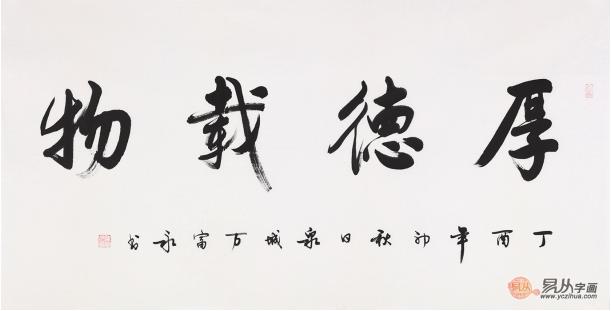 厚德載物
丁酉年初秋日泉城万富永书
易从
易从字画
www.yczihua.com